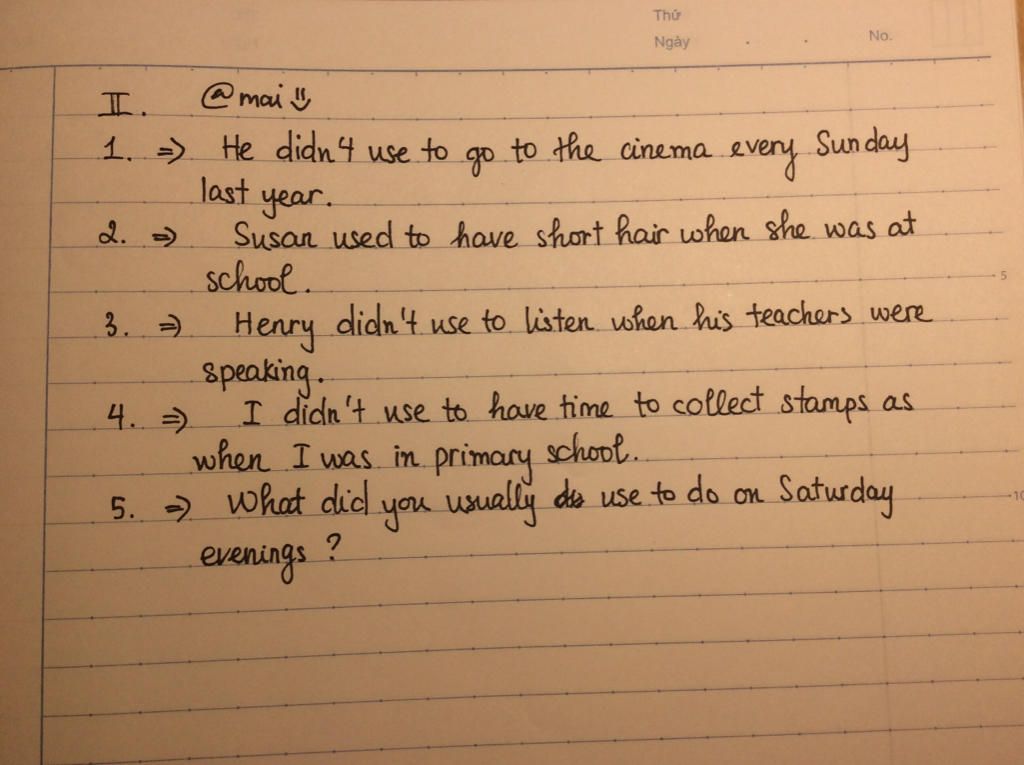 Thứ
Ngày . . No.
II. @mai
1. ⇒ He didn't use to go to the cinema every Sunday
last year.
2. ⇒ Susan used to have short hair when she was at
school.
5
3. ⇒ Henry didn't use to listen when his teachers were
speaking.
4. ⇒ I didn't use to have time to collect stamps as
when I was in primary school.
5. ⇒ What did you usually use to do on Saturday
10
evenings ?